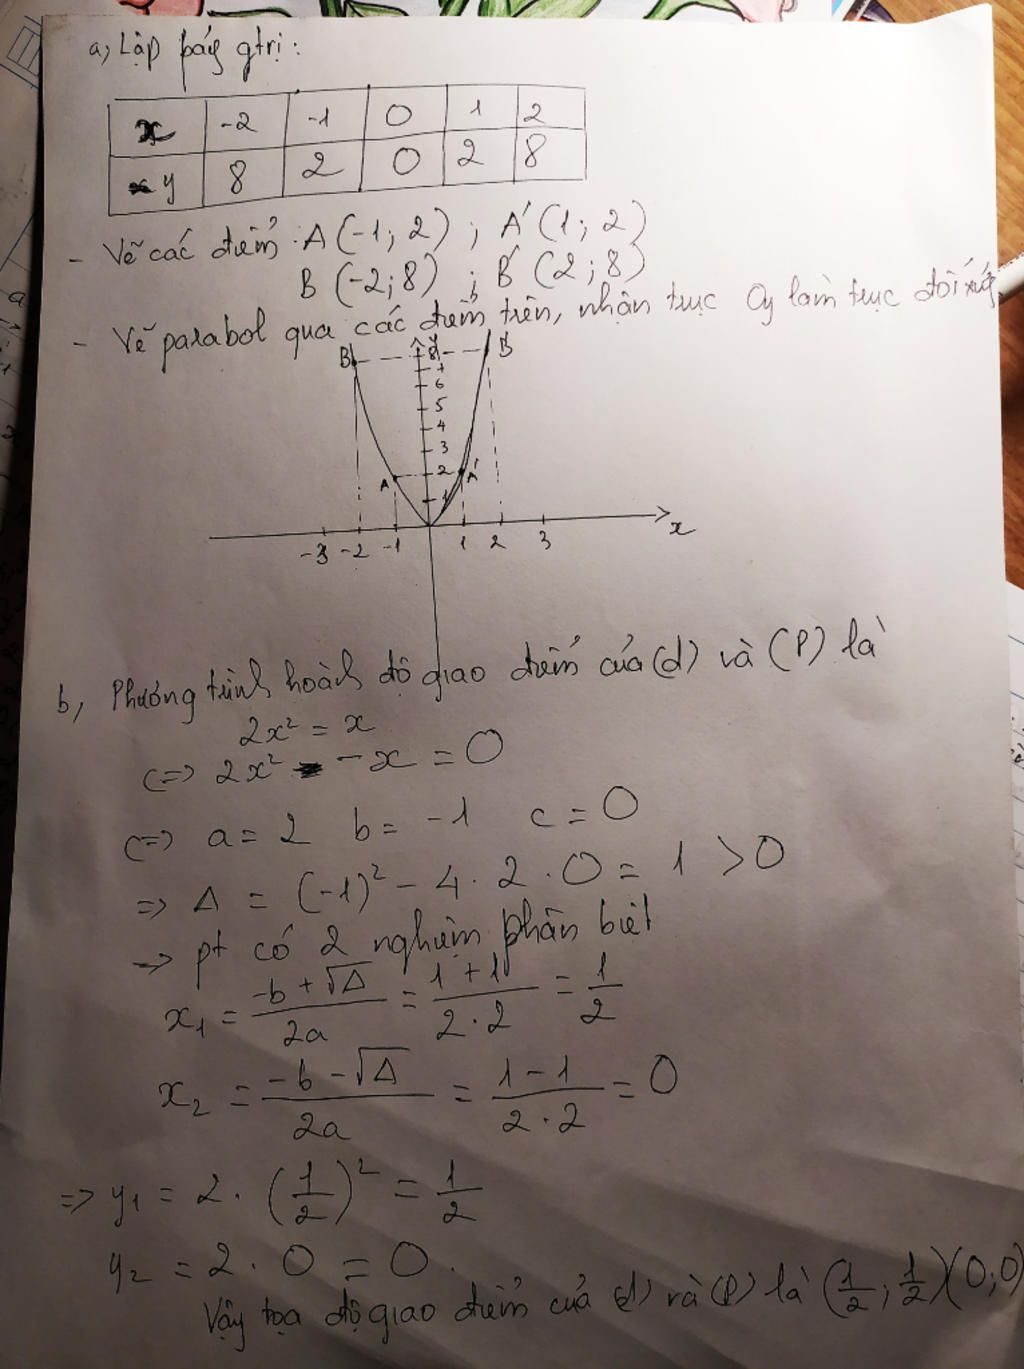 a, Lập bảg gtrị:
x -2 -1 0 1 2
y 8 2 0 2 8
- Vẽ các điểm: A(-1; 2) ; A'(1; 2)
B(-2; 8) ; B'(2; 8)
- Vẽ parabol qua các điểm trên, nhận trục Oy làm trục đối xứg
B 8 y B'
7
6
5
4
3
A 2 A'
1
-3 -2 -1 1 2 3 x
b, Phương trình hoành độ giao điểm của (d) và (P) là
2x² = x
<=> 2x² - x = 0
<=> a = 2 b = -1 c = 0
=> Δ = (-1)² - 4 . 2 . 0 = 1 > 0
-> pt có 2 nghiệm phân biệt
x₁ = (-b + √Δ)/2a = (1 + 1)/(2 . 2) = 1/2
x₂ = (-b - √Δ)/2a = (1 - 1)/(2 . 2) = 0
=> y₁ = 2 . (1/2)² = 1/2
y₂ = 2 . 0 = 0.
Vậy tọa độ giao điểm của (d) và (P) là (1/2; 1/2)(0; 0)